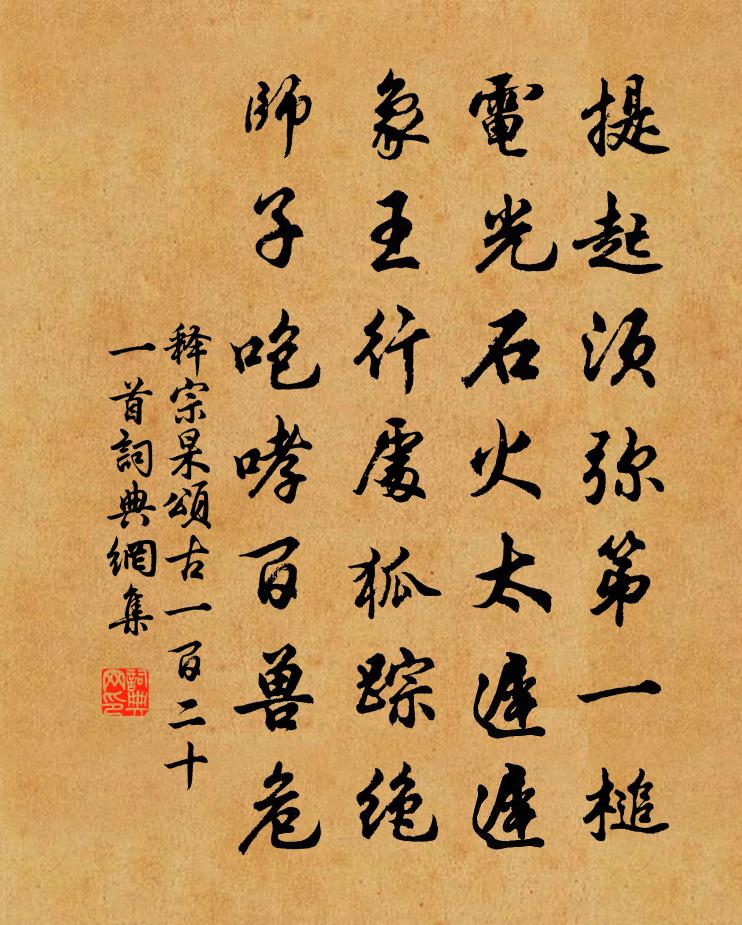 提起須弥第一槌
電光石火太遲遲
象王行處狐踪絶
師子咆哮百兽危
释宗杲頌古一百二十
一首詞典網集
詞典
网印